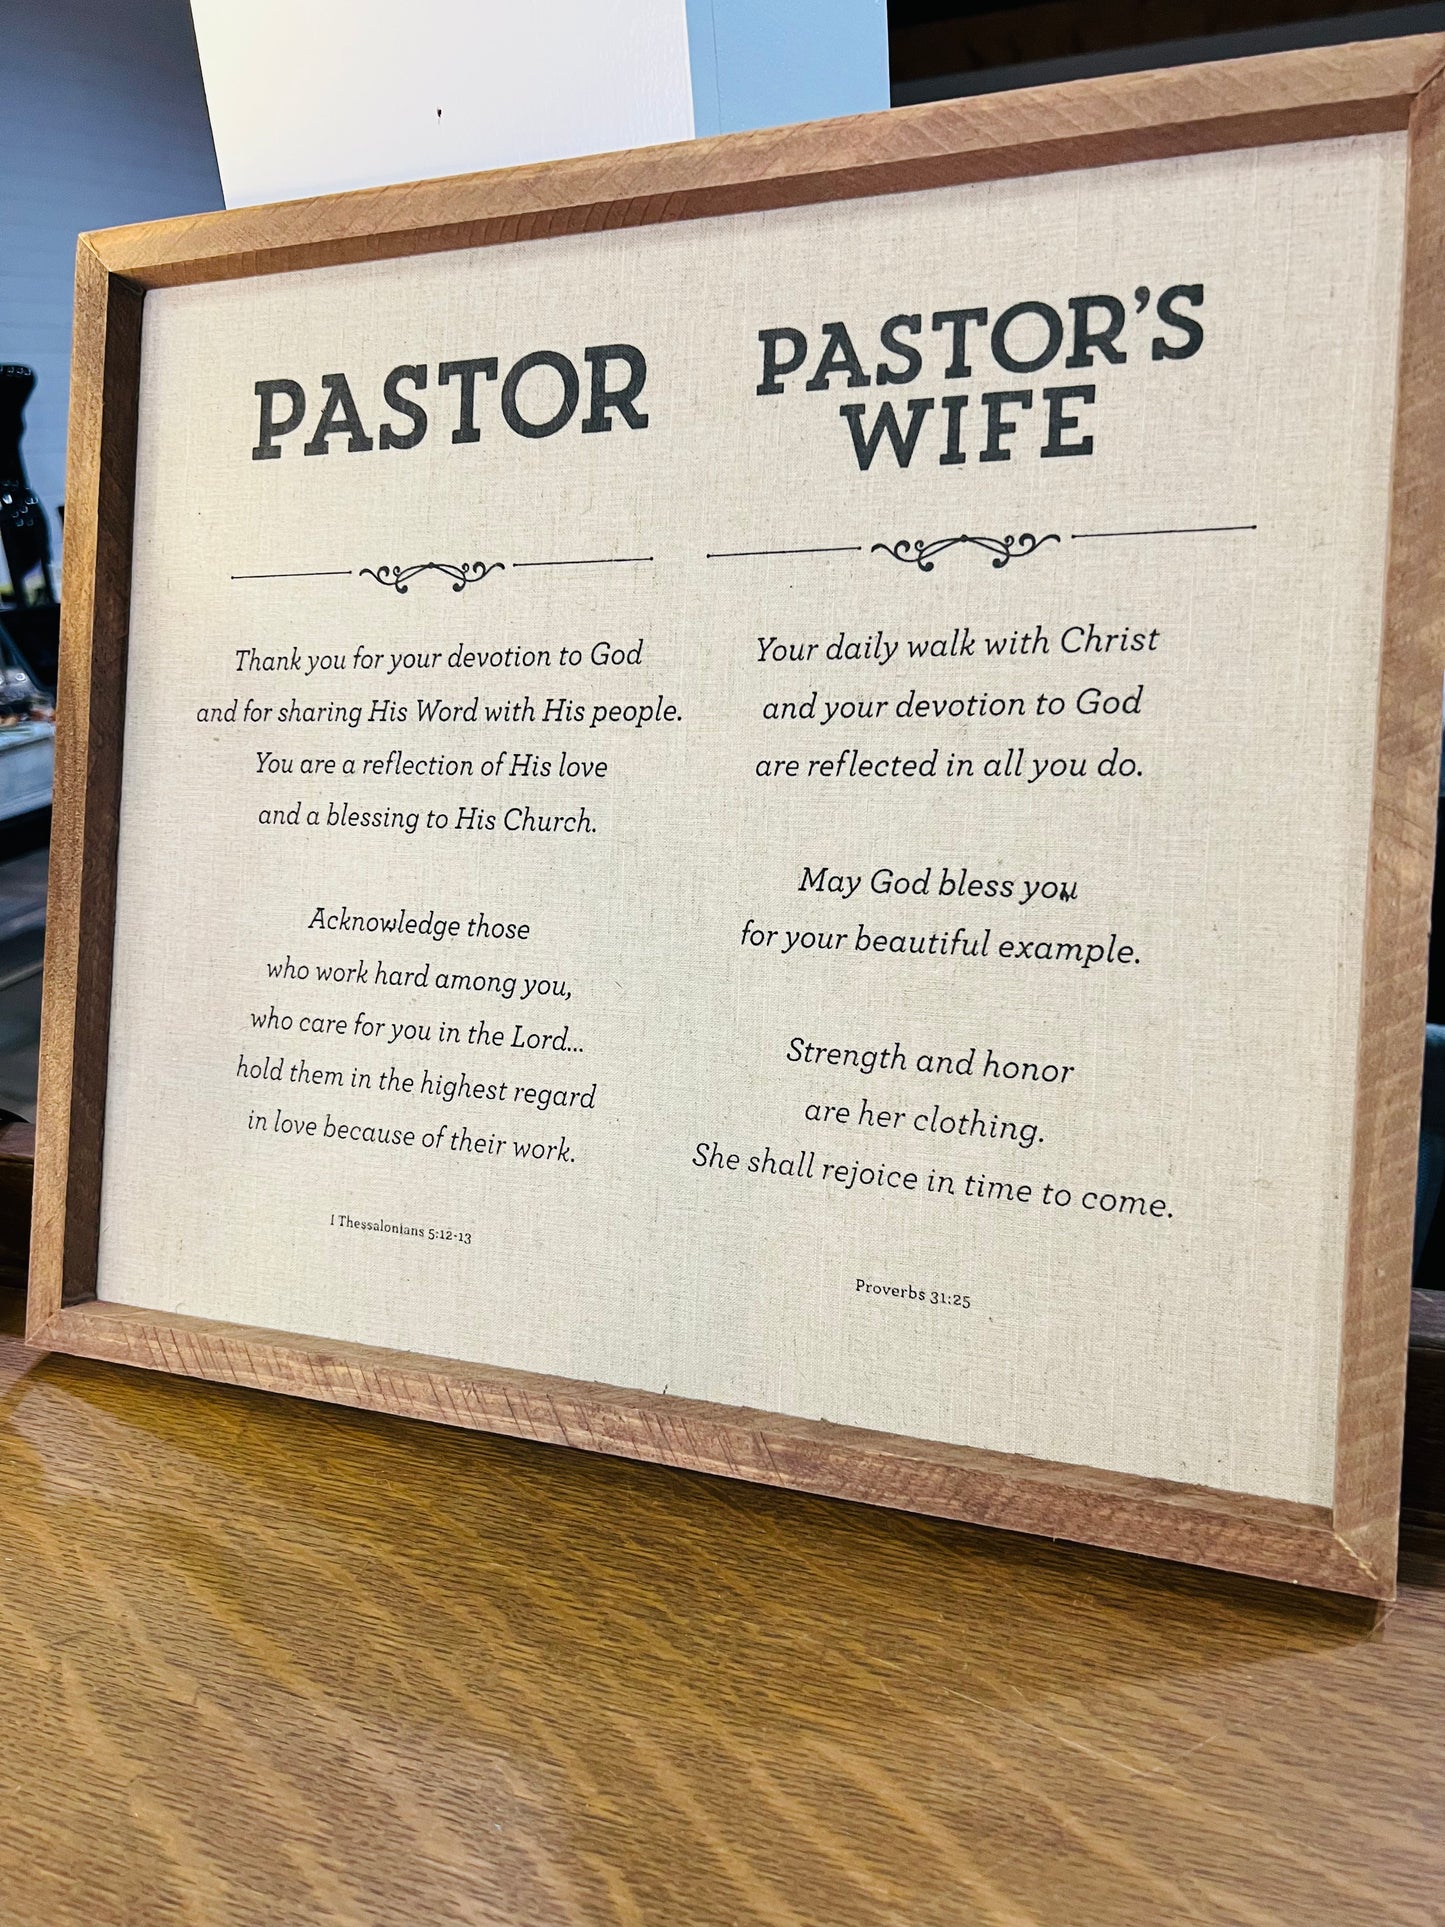 PASTOR
Thank you for your devotion to God
and for sharing His Word with His people.
You are a reflection of His love
and a blessing to His Church.
Acknowledge those
who work hard among you,
who care for you in the Lord...
hold them in the highest regard
in love because of their work.
1 Thessalonians 5:12-13
PASTOR'S
WIFE
Your daily walk with Christ
and your devotion to God
are reflected in all you do.
May God bless you
for your beautiful example.
Strength and honor
are her clothing.
She shall rejoice in time to come.
Proverbs 31:25